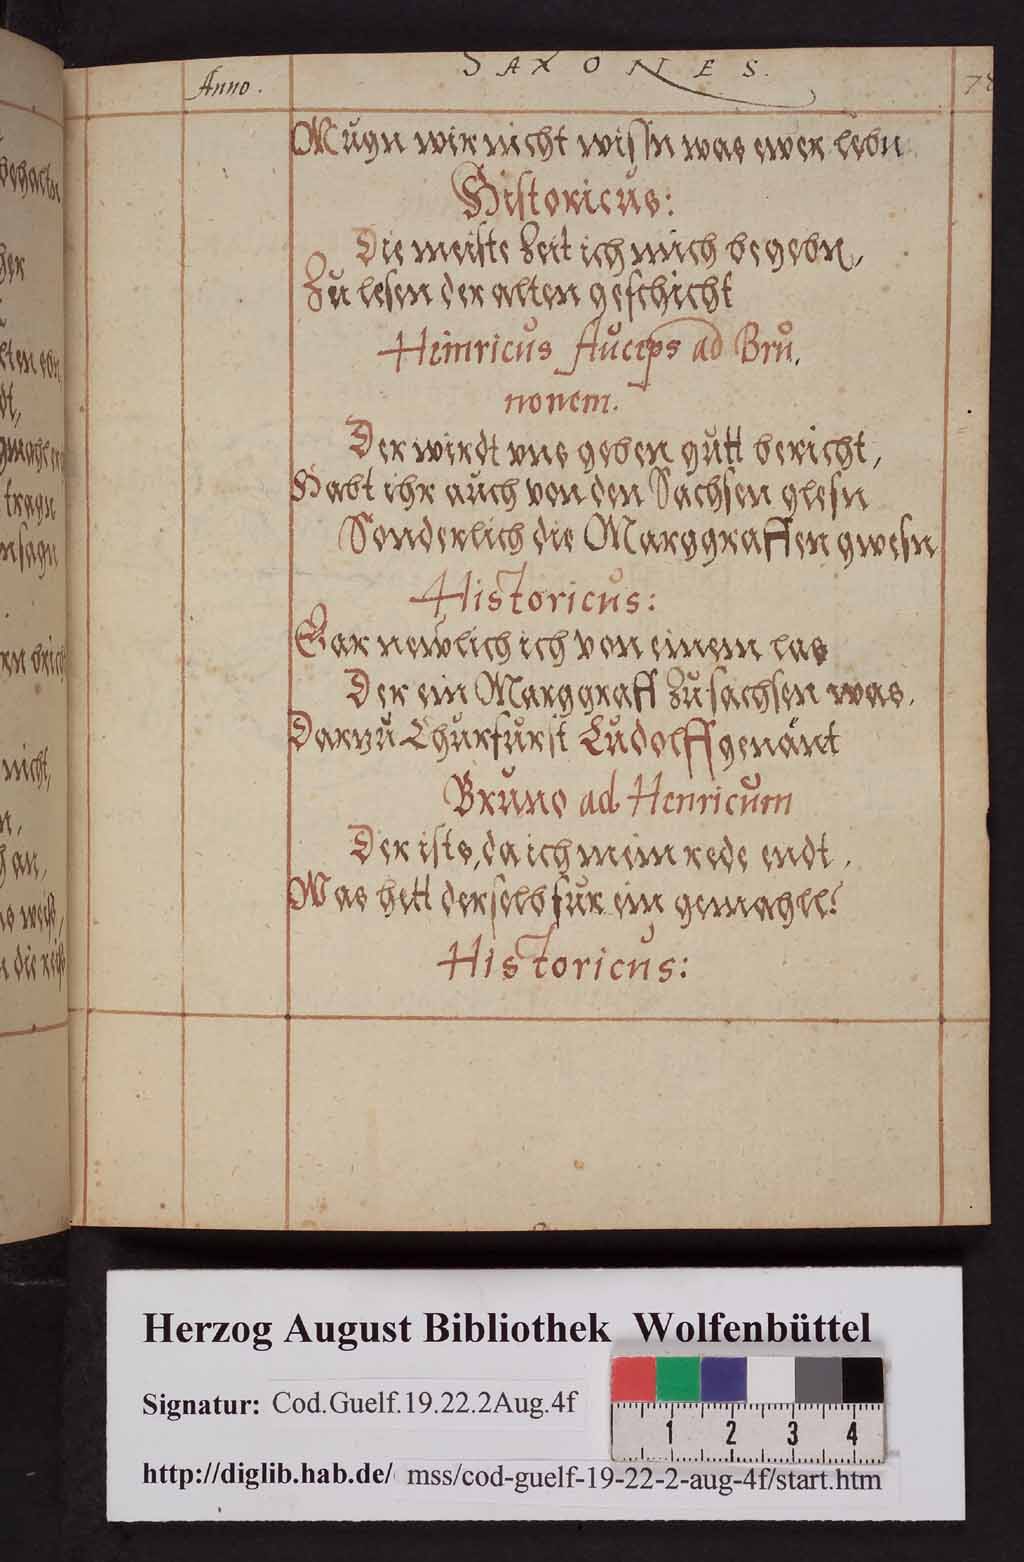 Anno.
SAXONES.
78
Mugn wir nicht wissn was ewer lebn
Historicus:
Die meiste Zeit ich mich begebn,
Zu lesen der alten geschicht
Heinricus Auceps ad Bru,
nonem.
Der wirdt vns geben gutt bericht,
Habt ihr auch von den Sachsen glesn
Sonderlich die Marggraffen gwesn
Historicus:
Gar newlich ich von einem las
Der ein Marggraff zu sachsen was.
Darzu Churfurst Ludolff genänt
Bruno ad Henricum
Der ists, da ich mein rede endt.
Was hett derselb fur ein gemahll?
Historicus:
tragn
nsagn
nicht,
n,
h an,
Herzog August Bibliothek Wolfenbüttel
Signatur: Cod.Guelf.19.22.2Aug.4f
1 2 3 4
http://diglib.hab.de/ mss/cod-guelf-19-22-2-aug-4f/start.htm